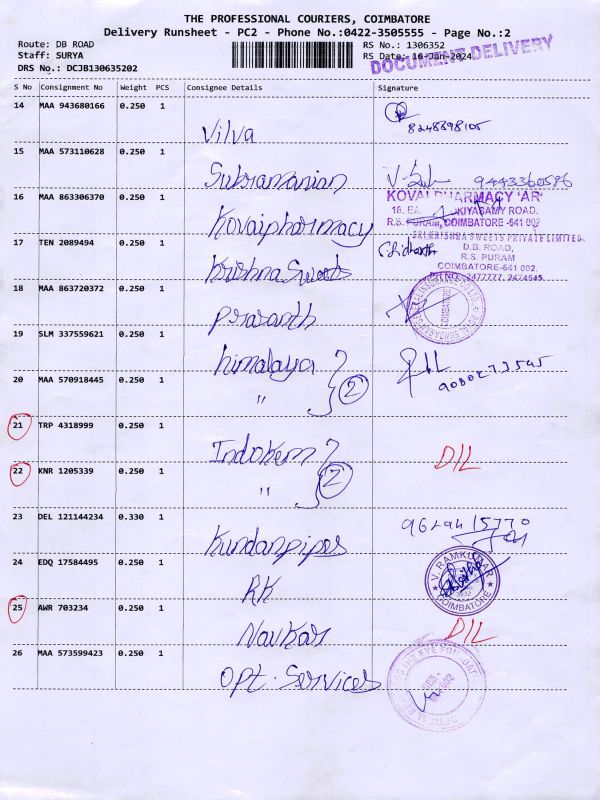 THE PROFESSIONAL COURIERS, COIMBATORE
Delivery Runsheet - PC2 - Phone No.:0422-3505555 - Page No.:2
Route: DB ROAD RS No.: 1306352
Staff: SURYA RS Date: 16-Jan-2024
DRS No.: DCJB130635202
DOCUMENT DELIVERY
S No Consignment No Weight PCS Consignee Details Signature
14 MAA 943680166 0.250 1
Vilva
15 MAA 573110628 0.250 1
Subramanian 9443360586
16 MAA 863306370 0.250 1
Kovaipharmacy
KOVAI PHARMACY 'AR'
R.S. PURAM, COIMBATORE -641 002
17 TEN 2089494 0.250 1
Krishna Sweets
SRI KRISHNA SWEETS PRIVATE LIMITED.
D.B. ROAD,
R.S. PURAM
COIMBATORE-641 002.
18 MAA 863720372 0.250 1
Prasanth
19 SLM 337559621 0.250 1
himalaya
20 MAA 570918445 0.250 1
" 2
21 TRP 4318999 0.250 1
Indokem D/L
22 KNR 1205339 0.250 1
" 2
23 DEL 121144234 0.330 1
Kundanpipes
24 EDQ 17584495 0.250 1
RK
V. RAMKUMAR
COIMBATORE
25 AWR 703234 0.250 1
Navkar D/L
26 MAA 573599423 0.250 1
Opt. Services